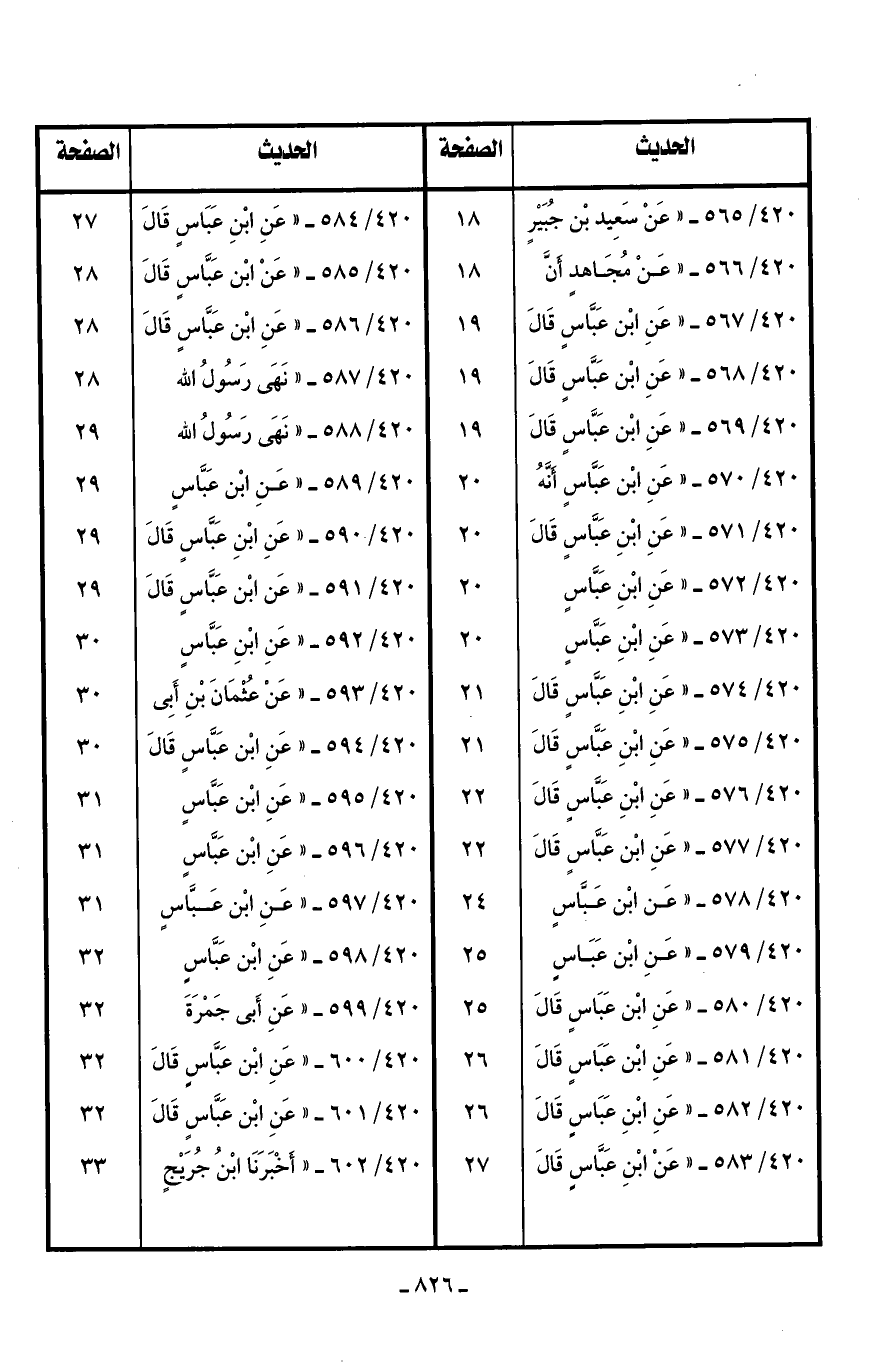 الحديث الصفحة الحديث الصفحة
٤٢٠/ ٥٦٥ ـ « عَنْ سَعِيدِ بْنِ جُبَيْرٍ ١٨
٤٢٠/ ٥٦٦ ـ « عَـنْ مُجَـاهِدٍ أَنَّ ١٨
٤٢٠/ ٥٦٧ ـ « عَنِ ابْنِ عَبَّاسٍ قَالَ ١٩
٤٢٠/ ٥٦٨ ـ « عَنِ ابْنِ عَبَّاسٍ قَالَ ١٩
٤٢٠/ ٥٦٩ ـ « عَنِ ابْنِ عَبَّاسٍ قَالَ ١٩
٤٢٠/ ٥٧٠ ـ « عَنِ ابْنِ عَبَّاسٍ أَنَّهُ ٢٠
٤٢٠/ ٥٧١ ـ « عَنِ ابْنِ عَبَّاسٍ قَالَ ٢٠
٤٢٠/ ٥٧٢ ـ « عَنِ ابْنِ عَبَّاسٍ ٢٠
٤٢٠/ ٥٧٣ ـ « عَنِ ابْنِ عَبَّاسٍ ٢٠
٤٢٠/ ٥٧٤ ـ « عَنِ ابْنِ عَبَّاسٍ قَالَ ٢١
٤٢٠/ ٥٧٥ ـ « عَنِ ابْنِ عَبَّاسٍ قَالَ ٢١
٤٢٠/ ٥٧٦ ـ « عَنِ ابْنِ عَبَّاسٍ قَالَ ٢٢
٤٢٠/ ٥٧٧ ـ « عَنِ ابْنِ عَبَّاسٍ قَالَ ٢٢
٤٢٠/ ٥٧٨ ـ « عَـنِ ابْنِ عَـبَّاسٍ ٢٤
٤٢٠/ ٥٧٩ ـ « عَـنِ ابْنِ عَبَـاسٍ ٢٥
٤٢٠/ ٥٨٠ ـ « عَنِ ابْنِ عَبَاسٍ قَالَ ٢٥
٤٢٠/ ٥٨١ ـ « عَنِ ابْنِ عَبَاسٍ قَالَ ٢٦
٤٢٠/ ٥٨٢ ـ « عَنِ ابْنِ عَبَاسٍ قَالَ ٢٦
٤٢٠/ ٥٨٣ ـ « عَنْ ابْنِ عَبَّاسٍ قَالَ ٢٧
٤٢٠/ ٥٨٤ ـ « عَنِ ابْنِ عَبَاسٍ قَالَ ٢٧
٤٢٠/ ٥٨٥ ـ « عَنْ ابْنِ عَبَّاسٍ قَالَ ٢٨
٤٢٠/ ٥٨٦ ـ « عَنِ ابْنِ عَبَّاسٍ قَالَ ٢٨
٤٢٠/ ٥٨٧ ـ « نَهَى رَسُولُ الله ٢٨
٤٢٠/ ٥٨٨ ـ « نَهَى رَسُولُ الله ٢٩
٤٢٠/ ٥٨٩ ـ « عَـنِ ابْنِ عَبَّاسٍ ٢٩
٤٢٠/ ٥٩٠ ـ « عَنِ ابْنِ عَبَّاسٍ قَالَ ٢٩
٤٢٠/ ٥٩١ ـ « عَنِ ابْنِ عَبَّاسٍ قَالَ ٢٩
٤٢٠/ ٥٩٢ ـ « عَنِ ابْنِ عَبَّاسٍ ٣٠
٤٢٠/ ٥٩٣ ـ « عَنْ عُثْمَانَ بْنِ أَبِى ٣٠
٤٢٠/ ٥٩٤ ـ « عَنِ ابْنِ عَبَّاسٍ قَالَ ٣٠
٤٢٠/ ٥٩٥ ـ « عَنِ ابْنِ عَبَّاسٍ ٣١
٤٢٠/ ٥٩٦ ـ « عَنِ ابْنِ عَبَّاسٍ ٣١
٤٢٠/ ٥٩٧ ـ « عَـنِ ابْنِ عَــبَّاسٍ ٣١
٤٢٠/ ٥٩٨ ـ « عَنِ ابْنِ عَبَّاسٍ ٣٢
٤٢٠/ ٥٩٩ ـ « عَنِ أَبِى جَمْرَةَ ٣٢
٤٢٠/ ٦٠٠ ـ « عَنِ ابْنِ عَبَّاسٍ قَالَ ٣٢
٤٢٠/ ٦٠١ ـ « عَنِ ابْنِ عَبَّاسٍ قَالَ ٣٢
٤٢٠/ ٦٠٢ ـ « أَخْبَرَنَا ابْنُ جُرَيْجٍ ٣٣
ـ ٨٢٦ ـ